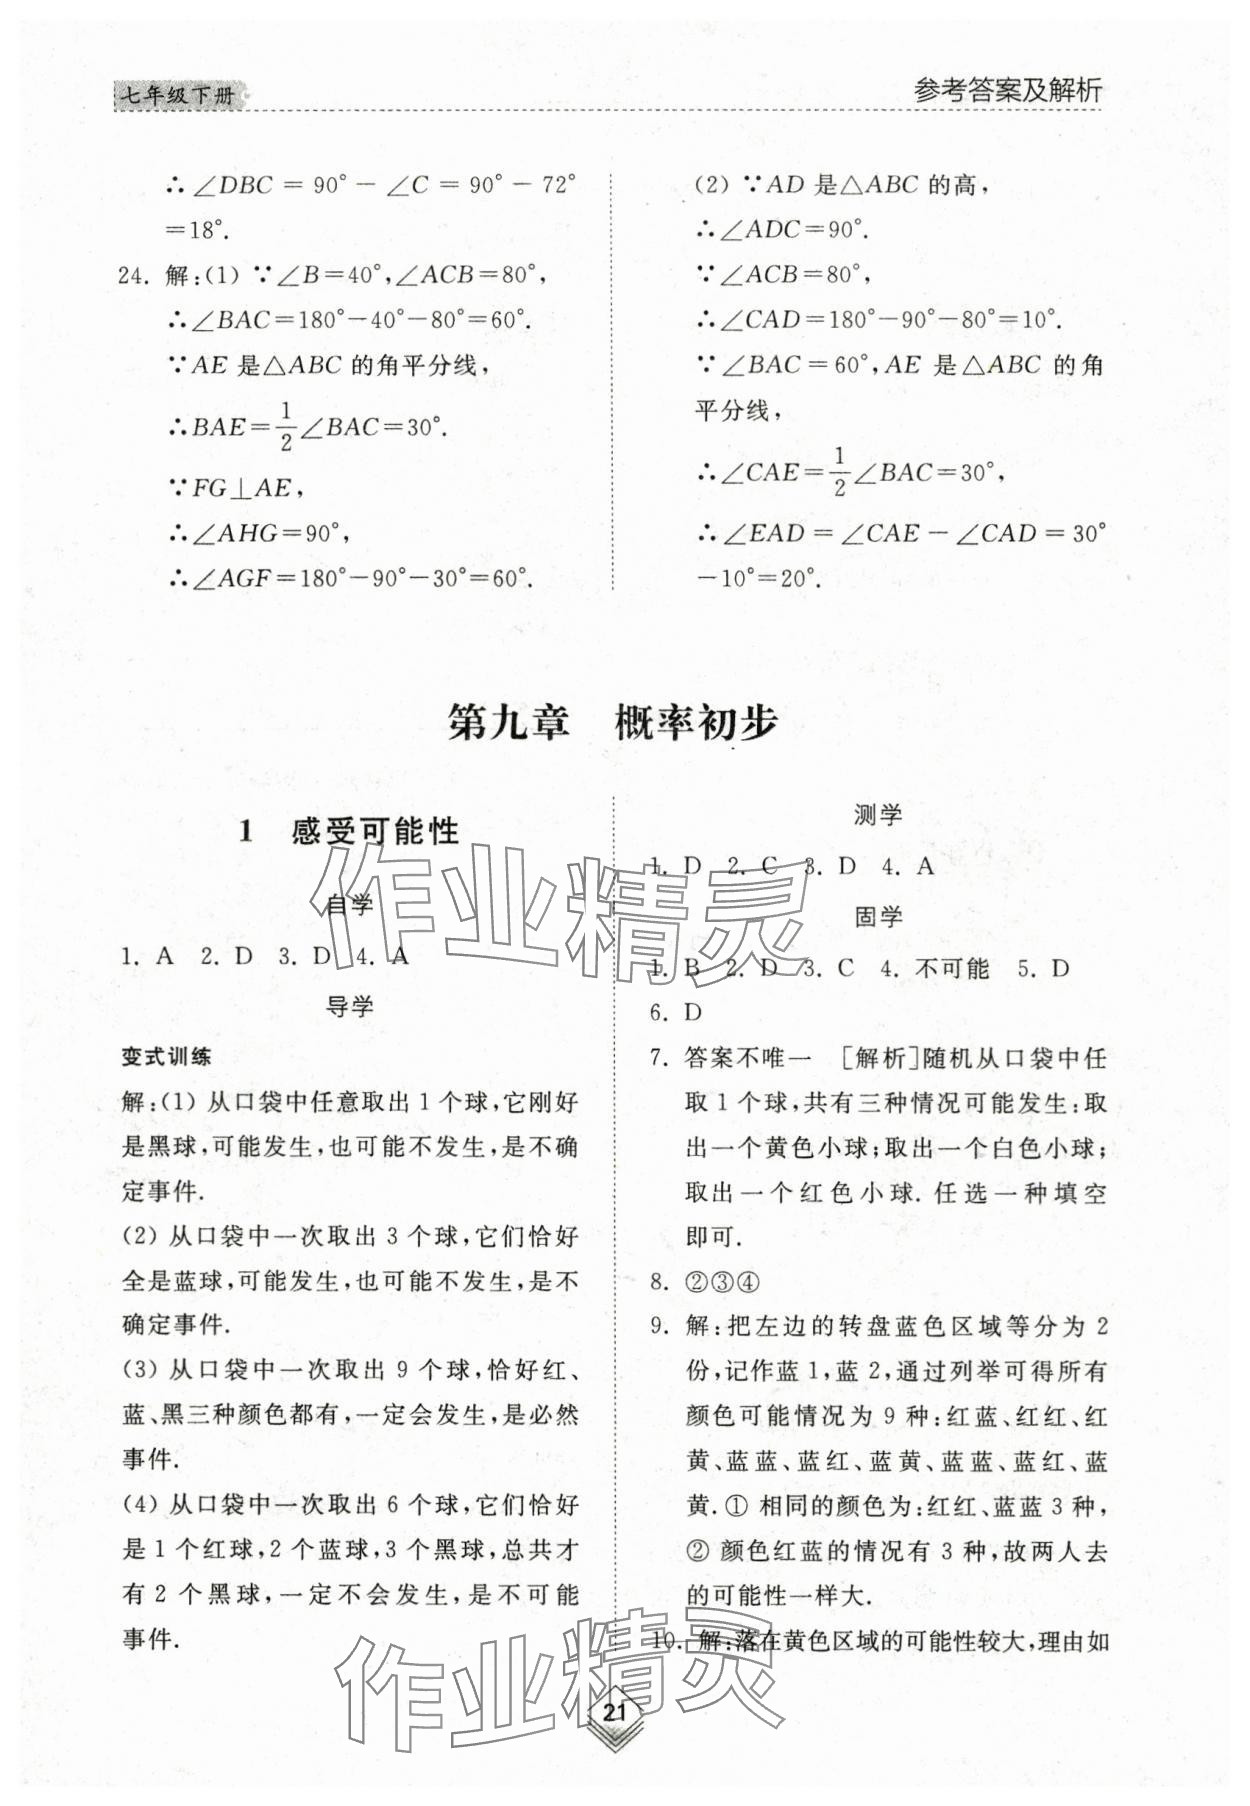 七年级下册
参考答案及解析
∴∠DBC = 90° − ∠C = 90° − 72°
=18°.
24. 解:(1) ∵∠B=40°,∠ACB=80°,
∴∠BAC=180°−40°−80°=60°.
∵AE 是△ABC 的角平分线,
∴BAE=1/2∠BAC=30°.
∵FG⊥AE,
∴∠AHG=90°,
∴∠AGF=180°−90°−30°=60°.
(2) ∵AD 是△ABC 的高,
∴∠ADC=90°.
∵∠ACB=80°,
∴∠CAD=180°−90°−80°=10°.
∵∠BAC=60°,AE 是△ABC 的角
平分线,
∴∠CAE=1/2∠BAC=30°,
∴∠EAD=∠CAE−∠CAD=30°
−10°=20°.
第九章 概率初步
1 感受可能性
自学
1. A 2. D 3. D 4. A
导学
变式训练
解:(1) 从口袋中任意取出 1 个球,它刚好
是黑球,可能发生,也可能不发生,是不确
定事件.
(2) 从口袋中一次取出 3 个球,它们恰好
全是蓝球,可能发生,也可能不发生,是不
确定事件.
(3) 从口袋中一次取出 9 个球,恰好红、
蓝、黑三种颜色都有,一定会发生,是必然
事件.
(4) 从口袋中一次取出 6 个球,它们恰好
是 1 个红球,2 个蓝球,3 个黑球,总共才
有 2 个黑球,一定不会发生,是不可能
事件.
测学
1. D 2. C 3. D 4. A
固学
1. B 2. D 3. C 4. 不可能 5. D
6. D
7. 答案不唯一 [解析]随机从口袋中任
取 1 个球,共有三种情况可能发生:取
出一个黄色小球;取出一个白色小球;
取出一个红色小球. 任选一种填空
即可.
8. ②③④
9. 解:把左边的转盘蓝色区域等分为 2
份,记作蓝 1,蓝 2,通过列举可得所有
颜色可能情况为 9 种:红蓝、红红、红
黄、蓝蓝、蓝红、蓝黄、蓝蓝、蓝红、蓝
黄.① 相同的颜色为:红红、蓝蓝 3 种,
② 颜色红蓝的情况有 3 种,故两人去
的可能性一样大.
10. 解:落在黄色区域的可能性较大,理由如
作业精灵
作业精灵
21